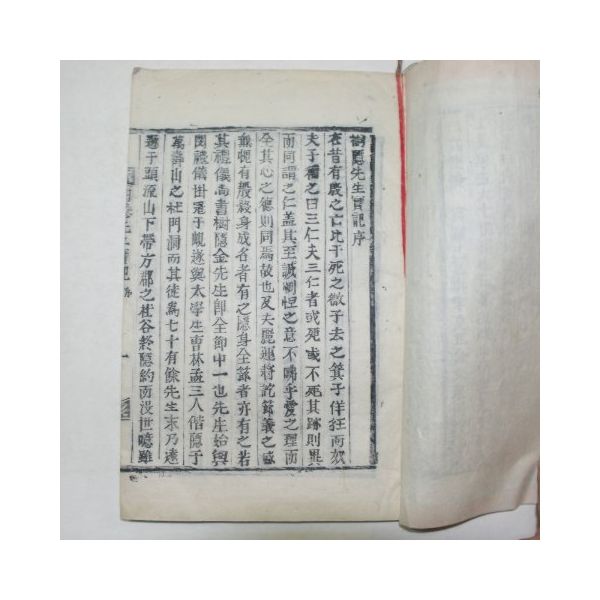 樹隱先生實記序
在昔有殷之亡比干死之微子去之箕子佯狂而奴
夫子稱之曰三仁夫三仁者或死或不死其跡則異
而同謂之仁盖其至誠惻怛之意不咈乎愛之理而
全其心之德則同焉故也及夫麗運將訖節義之盛
輒軶有殷殺身成名者有之隱身全節者亦有之若
其禮儀尚書樹隱金先生卽全節中一也先生始與
閔禮儀掛冠于峴遂與太學生曺林孟三人偕隱于
萬壽山之杜門洞而其徒爲七十有餘先生末乃遠
遯于頭流山下帶方郡之杜谷終隱約而沒世噫雖